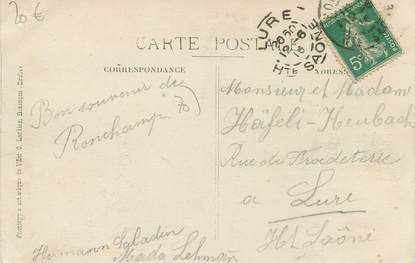 20 €
LURE
Hte SAÔNE
CARTE POSTALE
CORRESPONDANCE
ADRESSE
5c
Bon souvenir de
Ronchamp
70
Hermann Saladin
Mada Lehman
Monsieur et Madame
Häfeli-Heubach
Rue de Froideterre
a Lure
Ht Saône